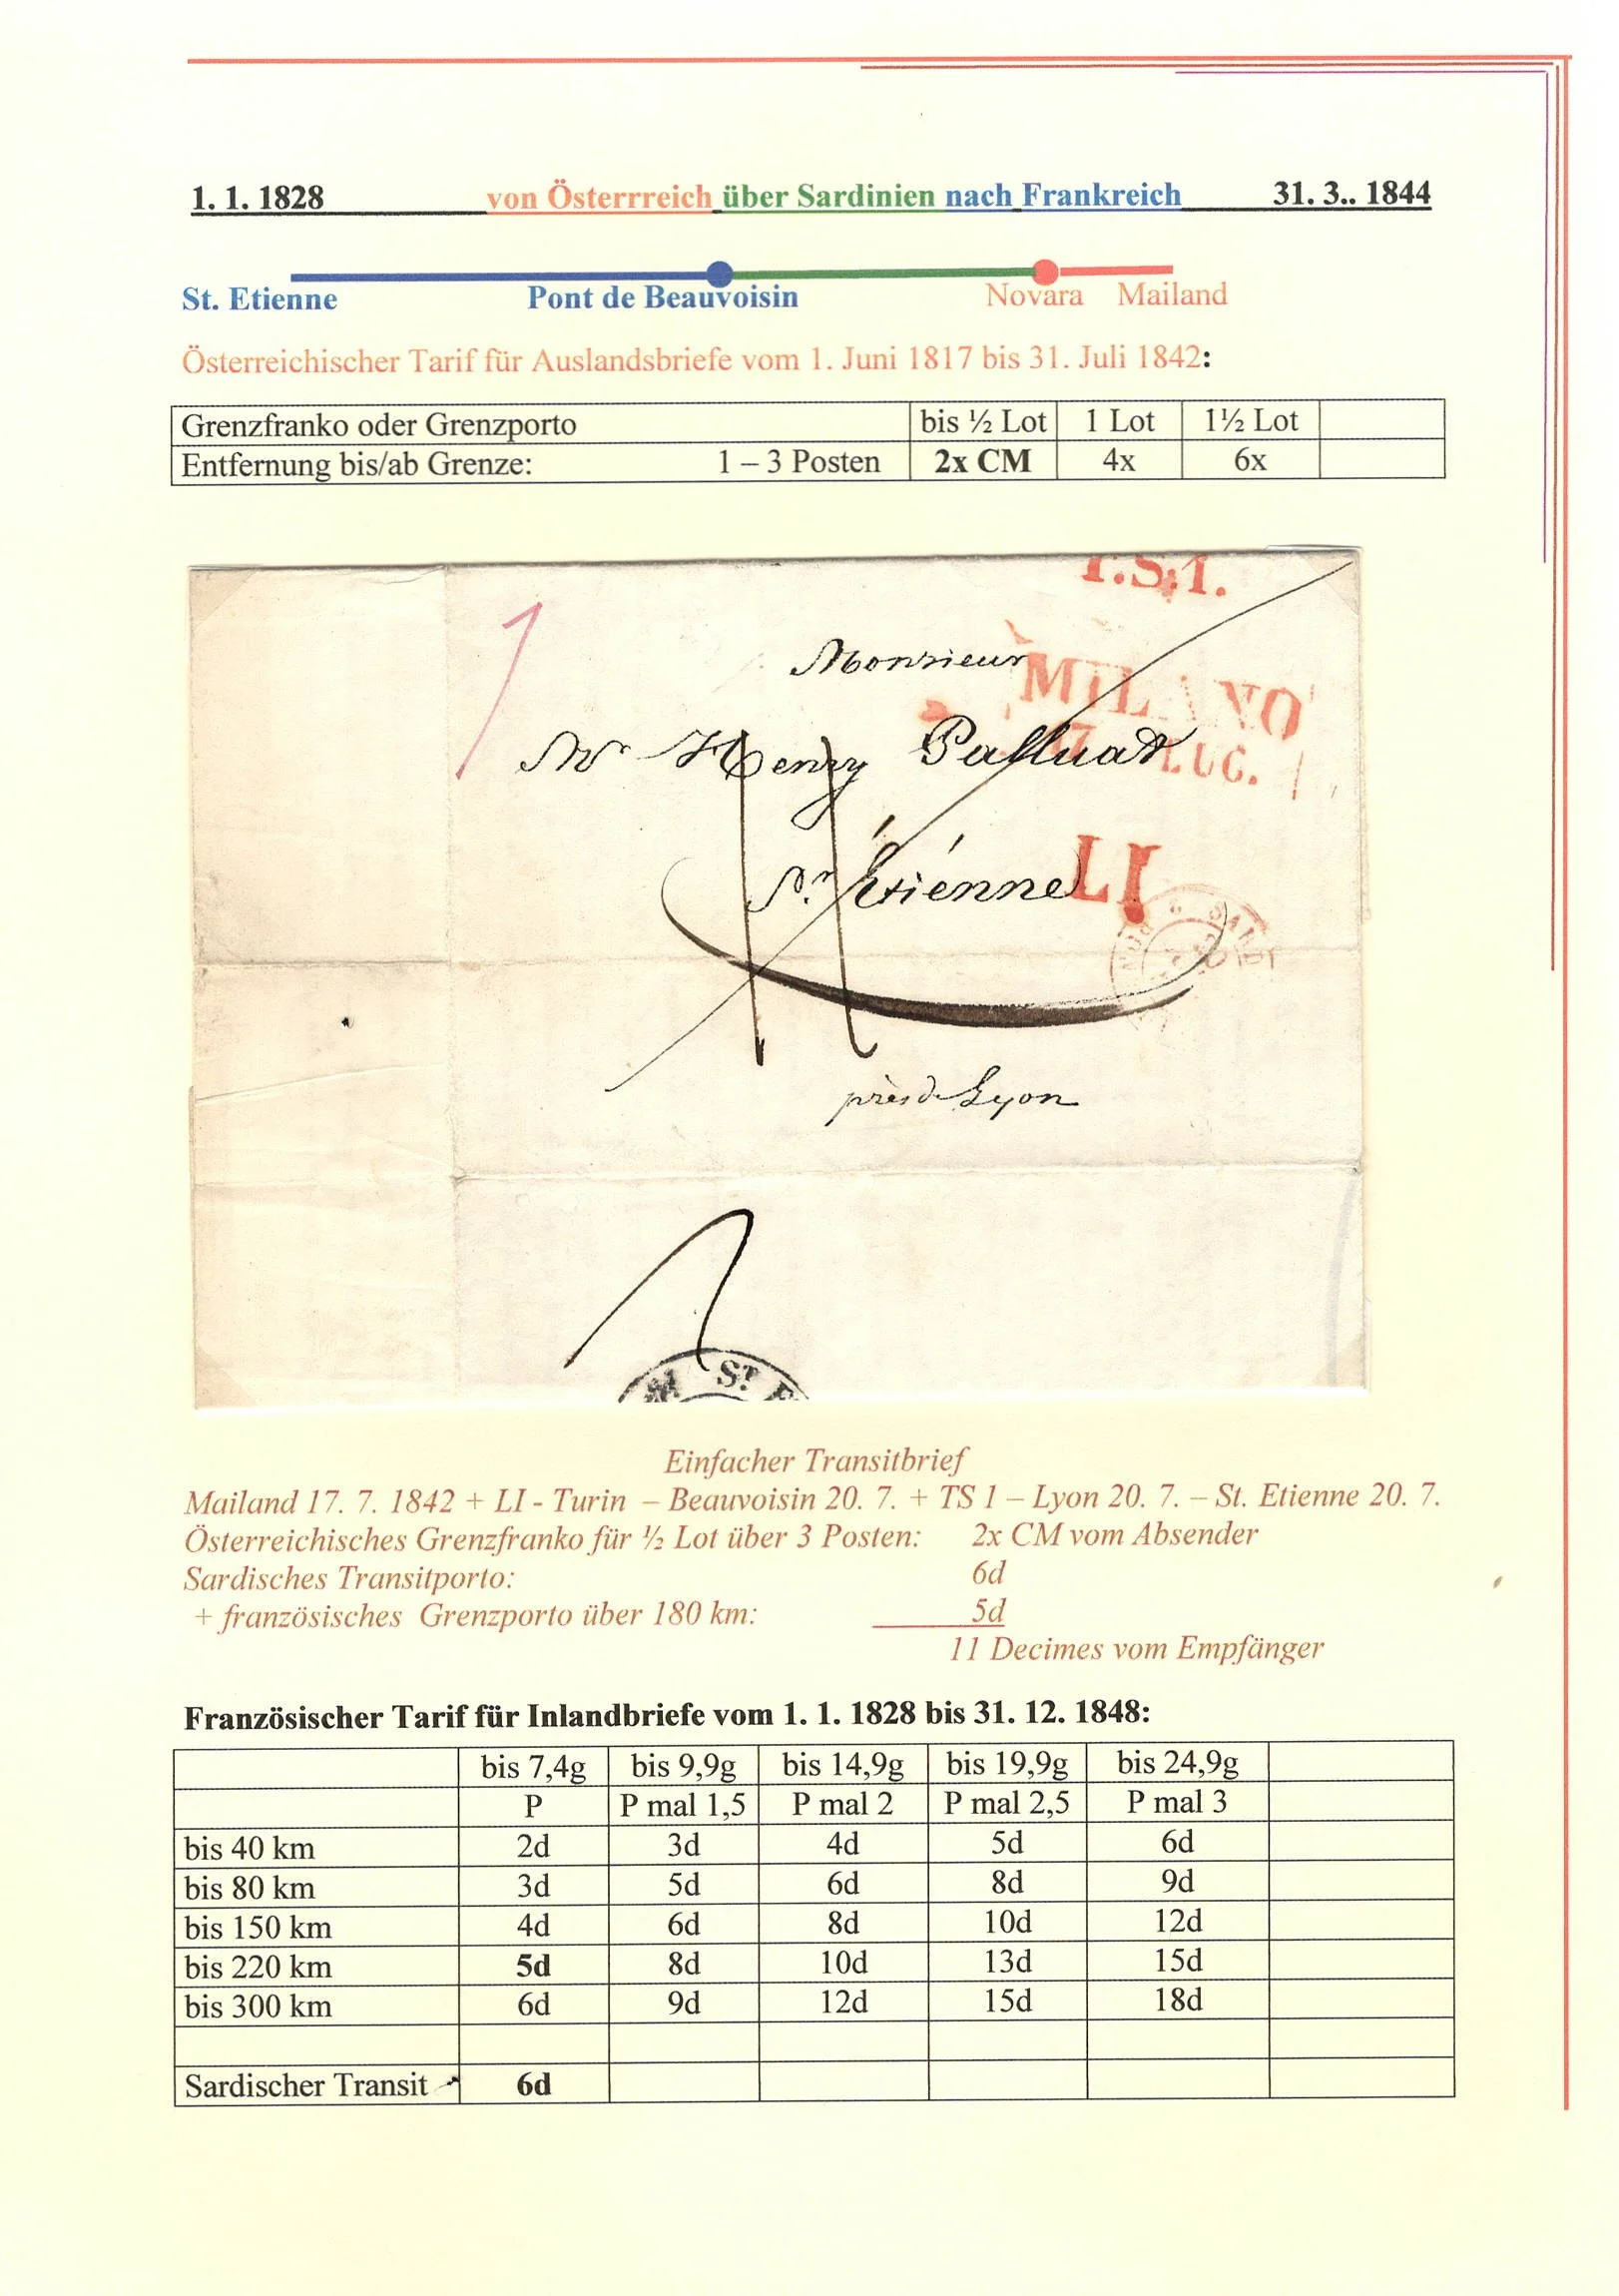 1. 1. 1828 von Österrreich über Sardinien nach Frankreich 31. 3.. 1844
St. Etienne Pont de Beauvoisin Novara Mailand
Österreichischer Tarif für Auslandsbriefe vom 1. Juni 1817 bis 31. Juli 1842:
Grenzfranko oder Grenzporto bis ½ Lot 1 Lot 1½ Lot
Entfernung bis/ab Grenze: 1 – 3 Posten 2x CM 4x 6x
T.S.1.
Monsieur
MILANO
Mr Henry Palluat
17 LUG.
St. Étiénne
LI
près de Lyon
ST. E
Einfacher Transitbrief
Mailand 17. 7. 1842 + LI - Turin – Beauvoisin 20. 7. + TS 1 – Lyon 20. 7. – St. Etienne 20. 7.
Österreichisches Grenzfranko für ½ Lot über 3 Posten: 2x CM vom Absender
Sardisches Transitporto: 6d
+ französisches Grenzporto über 180 km: 5d
11 Decimes vom Empfänger
Französischer Tarif für Inlandbriefe vom 1. 1. 1828 bis 31. 12. 1848:
bis 7,4g bis 9,9g bis 14,9g bis 19,9g bis 24,9g
P P mal 1,5 P mal 2 P mal 2,5 P mal 3
bis 40 km 2d 3d 4d 5d 6d
bis 80 km 3d 5d 6d 8d 9d
bis 150 km 4d 6d 8d 10d 12d
bis 220 km 5d 8d 10d 13d 15d
bis 300 km 6d 9d 12d 15d 18d
Sardischer Transit 6d